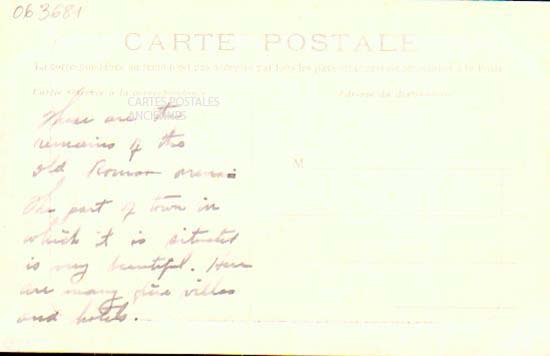 063681
CARTE POSTALE
La correspondance au recto n'est pas acceptée par tous les pays étrangers
Carte réservée à la correspondance
Adresse du destinataire
CARTES POSTALES
ANCIENNES
M
These are the
remains of the
old Roman arena.
The part of town in
which it is situated
is very beautiful. Here
are many fine villas
and hotels.